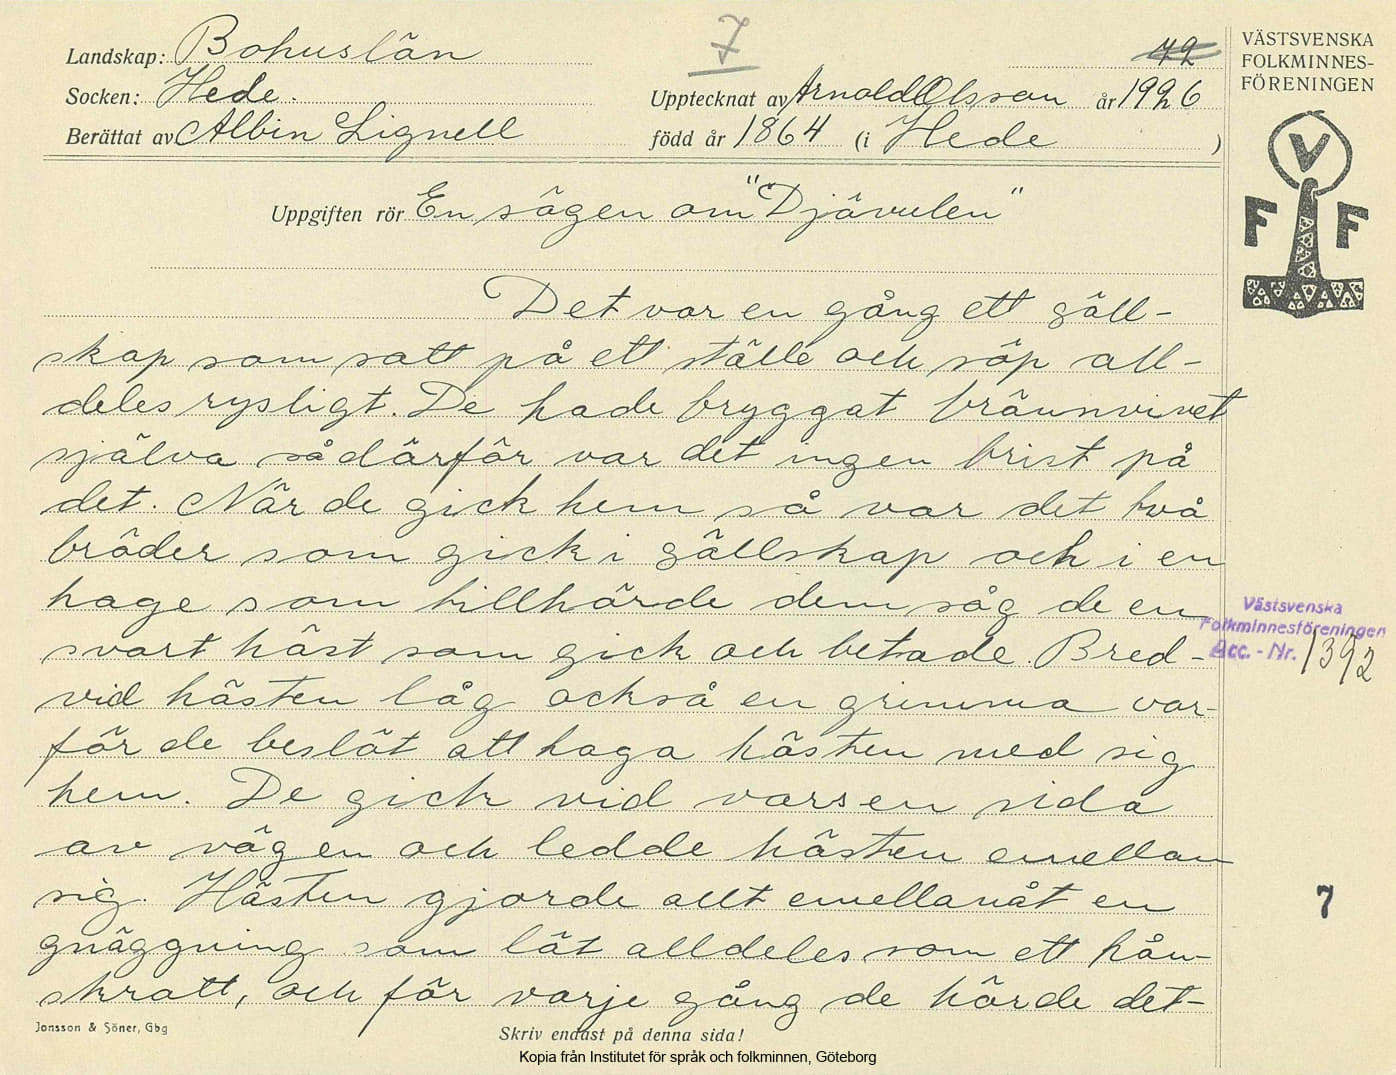 Landskap: Bohuslän
7
42
Socken: Hede.
Upptecknat av Arnold Olsson år 1926
Berättat av Albin Lignell
född år 1864 (i Hede )
Uppgiften rör En sägen om "Djävulen"
Det var en gång ett säll-
skap som satt på ett ställe och söp all-
deles rysligt. De hade bryggat brännvinet
själva så därför var det ingen brist på
det. När de gick hem så var det två
bröder som gick i sällskap och i en
hage som tillhörde dem såg de en
svart häst som gick och betade. Bred-
vid hästen låg också en grimma var-
för de beslöt att taga hästen med sig
hem. De gick vid varsen sida
av vägen och ledde hästen emellan
sig. Hästen gjorde allt emellanåt en
gnäggning som lät alldeles som ett hån-
skratt, och för varje gång de hörde det-
Jonsson & Söner, Gbg
Skriv endast på denna sida!
Kopia från Institutet för språk och folkminnen, Göteborg
VÄSTSVENSKA
FOLKMINNES-
FÖRENINGEN
V
F F
Västsvenska
Folkminnesföreningen
Acc. - Nr. 1392
7